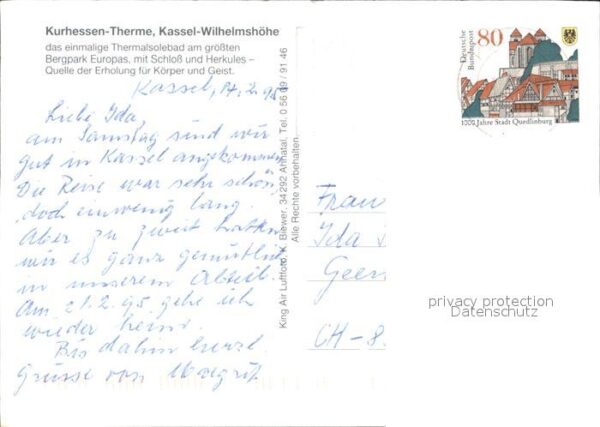 Kurhessen-Therme, Kassel-Wilhelmshöhe
das einmalige Thermalsolebad am größten
Bergpark Europas, mit Schloß und Herkules –
Quelle der Erholung für Körper und Geist.
Kassel, 14.2.95
Liebe Ida,
am Samstag sind wir
gut in Kassel angekommen
Die Reise war sehr schön,
doch ein wenig lang.
Aber zu zweit hatten
wir es ganz gemütlich
in unserem Abteil.
Am 21.2.95 gehe ich
wieder heim.
Bis dahin herzl.
Grüsse von Margrit
King Air Luftfoto, K. Biewer, 34292 Ahnatal, Tel. 0 56 09 / 91 46
Alle Rechte vorbehalten.
Deutsche
Bundespost
80
1000 Jahre Stadt Quedlinburg
Frau
Ida
CH-8
privacy protection
Datenschutz